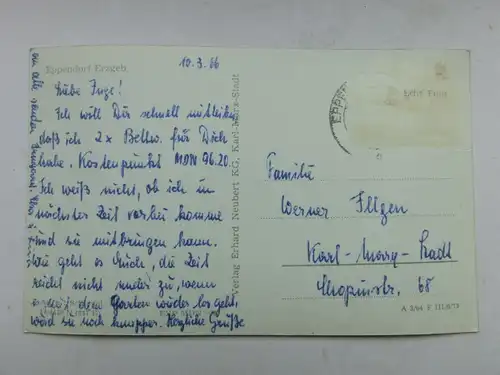 Eppendorf Erzgeb.
10.3.66
Liebe Inge!
Ich will Dir schnell mitteilen,
daß ich 2 x Bettw. für Dich
habe. Kostenpunkt MDN 96.20.
Ich weiß nicht, ob ich in
nächster Zeit vorbei komme
und sie mitbringen kann.
Wie geht es Euch, die Zeit
reicht nicht mehr zu, wenn
es mit dem Garten wieder los geht,
wird sie noch knapper. Herzliche Grüße
an alle
Verlag Erhard Neubert KG, Karl-Marx-Stadt
Echt Foto
EPPE
Familie
Werner
Karl-Marx-Stadt
Chopinstr. 68